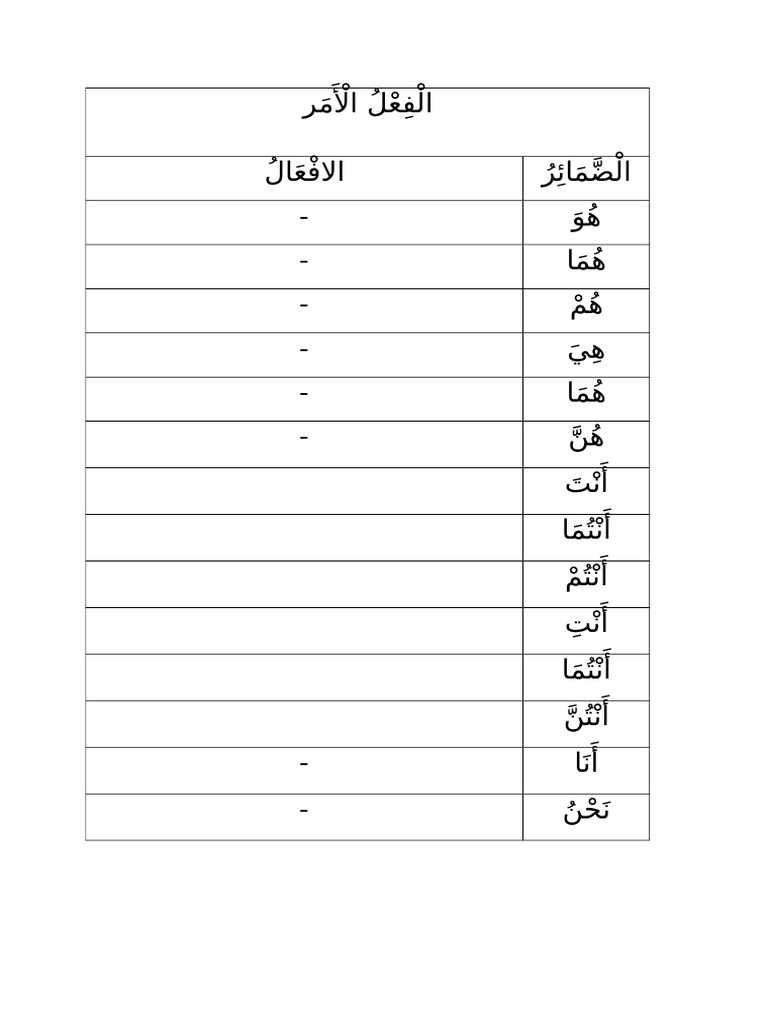 الْفِعْلُ الْأَمَر
الْضَّمَائِرُ الافْعَالُ
هُوَ -
هُمَا -
هُمْ -
هِيَ -
هُمَا -
هُنَّ -
أَنْتَ
أَنْتُمَا
أَنْتُمْ
أَنْتِ
أَنْتُمَا
أَنْتُنَّ
أَنَا -
نَحْنُ -